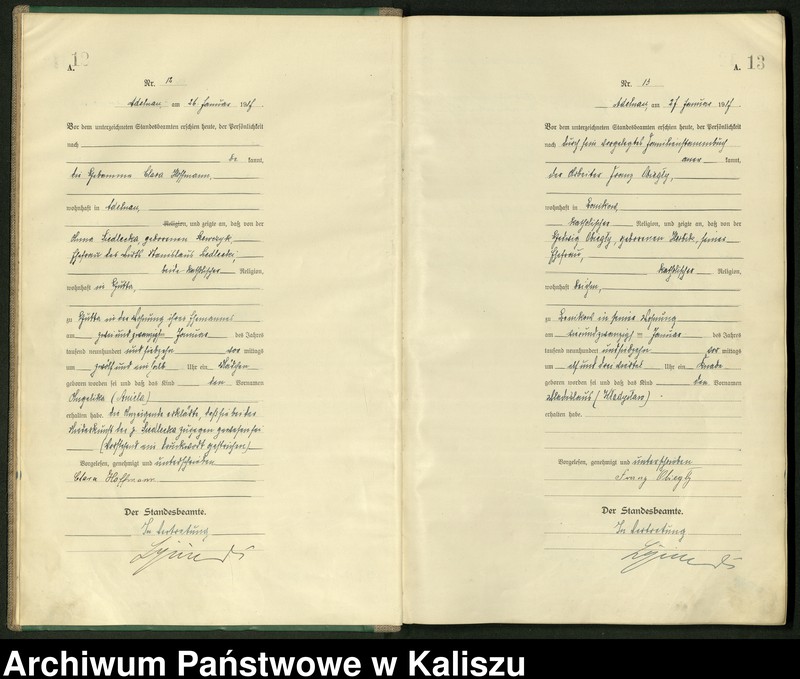 A. 12
Nr. 12
Adelnau, am 26 Januar 1917
Vor dem unterzeichneten Standesbeamten erschien heute, der Persönlichkeit
nach
be kannt,
die Hebamme Clara Hoffmann,
wohnhaft in Adelnau,
Religion, und zeigte an, daß von der
Anna Siedlecka, geborenen
Ehefrau des Stanislaus Siedlecki,
beide katholischer Religion,
wohnhaft in Hutta,
zu Hutta in der Wohnung ihres Ehemannes
am zweiundzwanzigsten Januar des Jahres
tausend neunhundert und siebzehn vor mittags
um zwölf und ein halb Uhr ein Mädchen
geboren worden sei und daß das Kind den Vornamen
Angelika (Aniela)
erhalten habe. Die Anzeigende erklärte, daß sie bei der
Niederkunft der p. Siedlecka zugegen gewesen sei
(Vorstehend ein Druckwort gestrichen)
Vorgelesen, genehmigt und unterschrieben
Clara Hoffmann
Der Standesbeamte.
In Vertretung
A. 13
Nr. 13
Adelnau, am 27 Januar 1917
Vor dem unterzeichneten Standesbeamten erschien heute, der Persönlichkeit
nach durch sein vorgelegtes Familienstammbuch
aner kannt,
der Arbeiter Franz
wohnhaft in
katholischer Religion, und zeigte an, daß von der
Hedwig geborenen seiner
Ehefrau,
katholischer Religion,
wohnhaft bei ihm,
zu in seiner Wohnung
am vierundzwanzigsten Januar des Jahres
tausend neunhundert und siebzehn vor mittags
um elf und drei viertel Uhr ein Knabe
geboren worden sei und daß das Kind den Vornamen
Wladislaus (Władysław)
erhalten habe.
Vorgelesen, genehmigt und unterschrieben
Franz
Der Standesbeamte.
In Vertretung
Archiwum Państwowe w Kaliszu